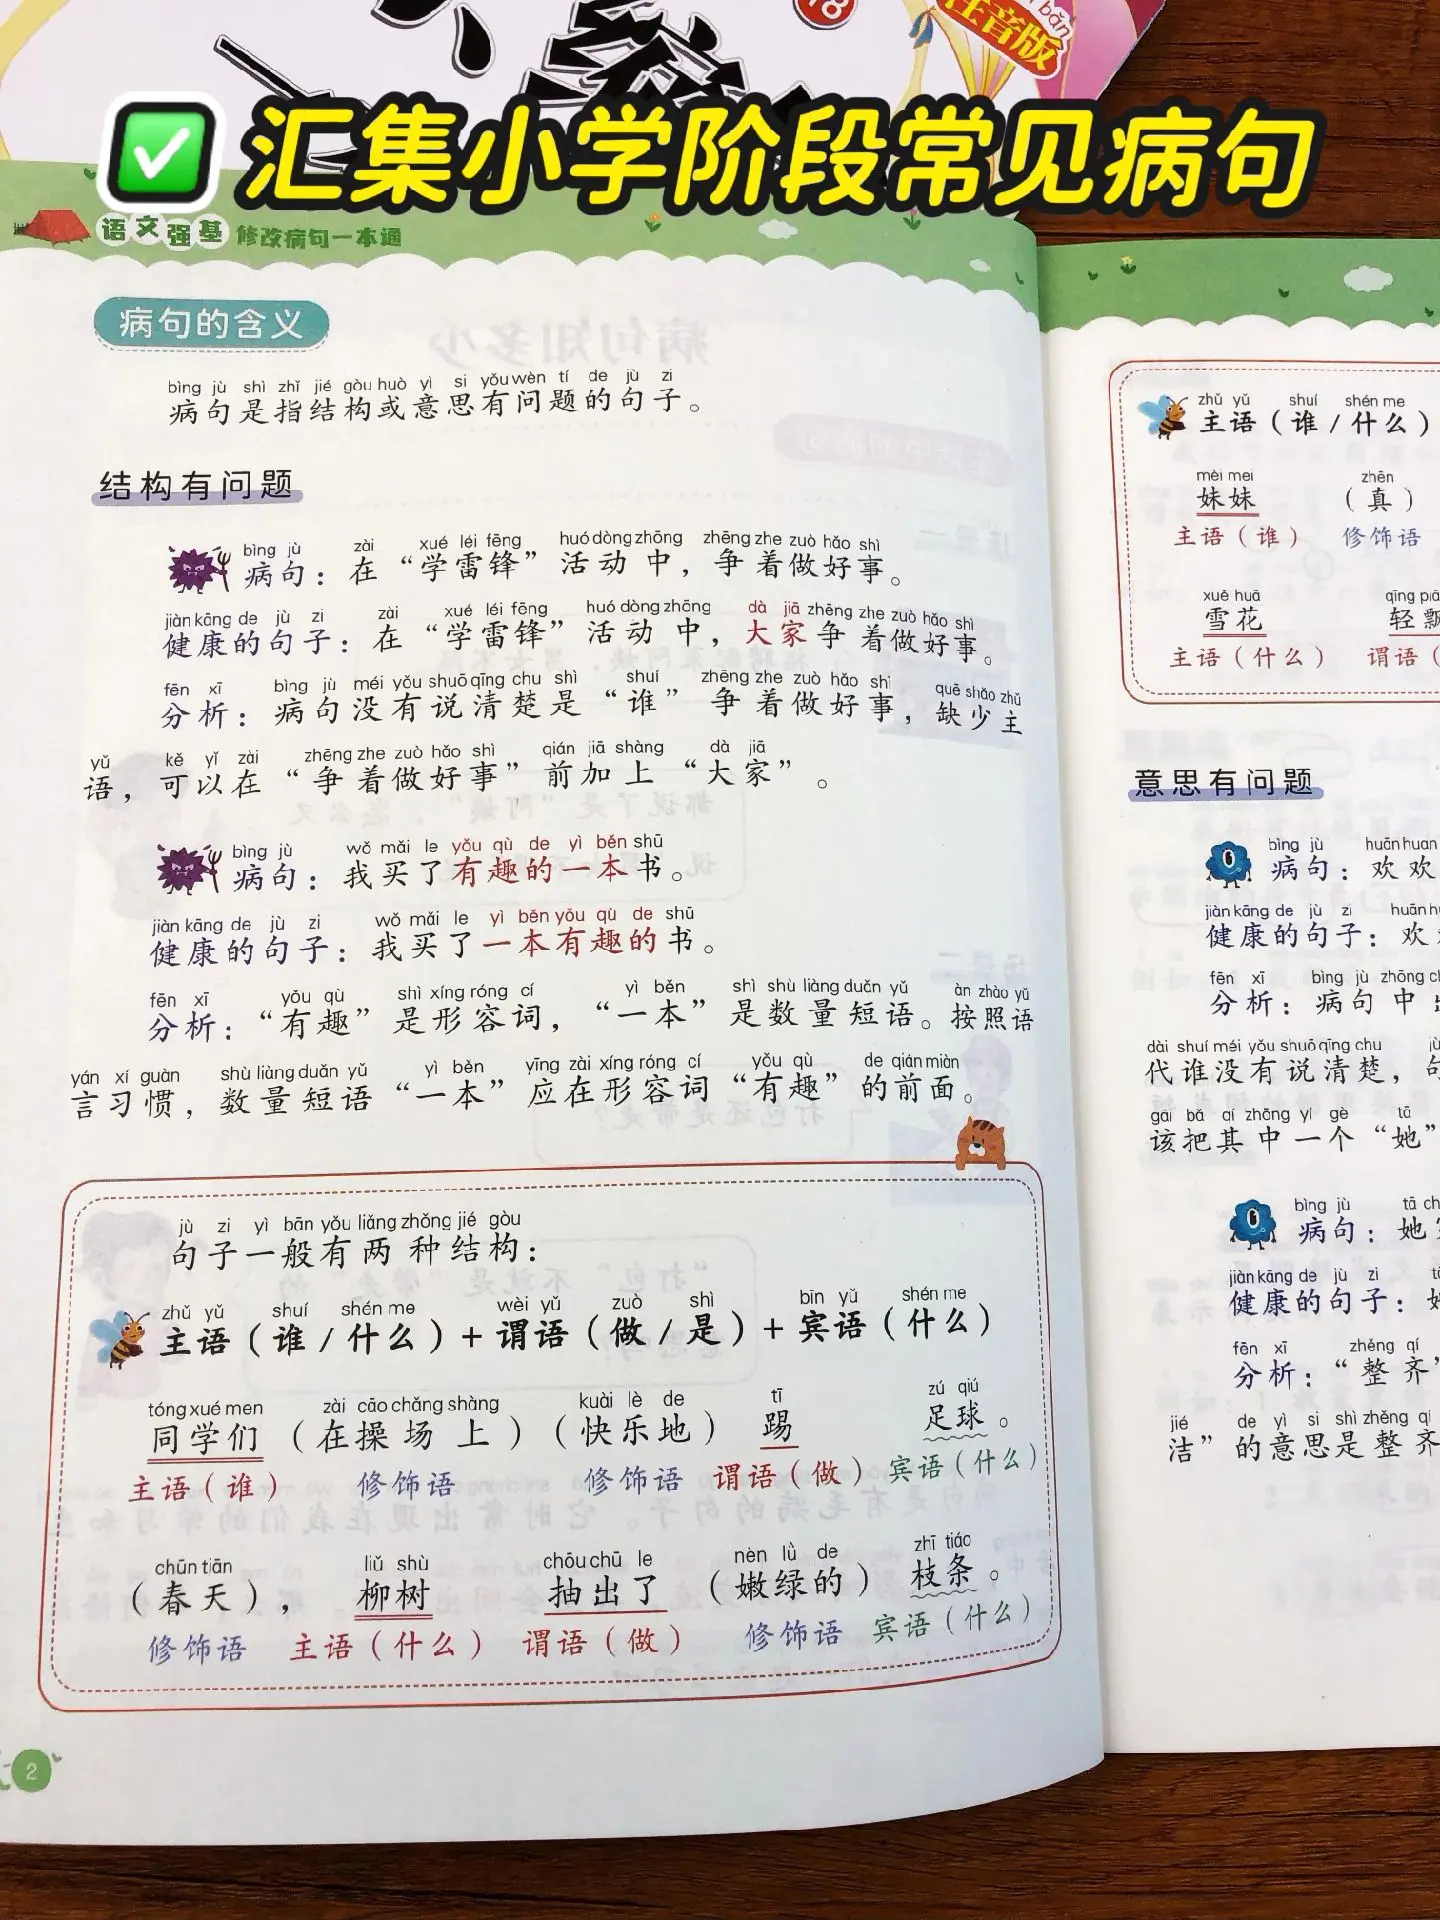 注音版
汇集小学阶段常见病句
语文强基 修改病句一本通
病句的含义
bìng jù shì zhǐ jié gòu huò yì si yǒu wèn tí de jù zi
病句是指结构或意思有问题的句子。
结构有问题
bìng jù zài xué léi fēng huó dòng zhōng zhēng zhe zuò hǎo shì
病句：在“学雷锋”活动中，争着做好事。
jiàn kāng de jù zi zài xué léi fēng huó dòng zhōng dà jiā zhēng zhe zuò hǎo shì
健康的句子：在“学雷锋”活动中，大家争着做好事。
fēn xī bìng jù méi yǒu shuō qīng chu shì shuí zhēng zhe zuò hǎo shì quē shǎo zhǔ
分析：病句没有说清楚是“谁”争着做好事，缺少主
yǔ kě yǐ zài zhēng zhe zuò hǎo shì qián jiā shàng dà jiā
语，可以在“争着做好事”前加上“大家”。
bìng jù wǒ mǎi le yǒu qù de yì běn shū
病句：我买了有趣的一本书。
jiàn kāng de jù zi wǒ mǎi le yì běn yǒu qù de shū
健康的句子：我买了一本有趣的书。
fēn xī yǒu qù shì xíng róng cí yì běn shì shù liàng duǎn yǔ àn zhào yǔ
分析：“有趣”是形容词，“一本”是数量短语。按照语
yán xí guàn shù liàng duǎn yǔ yì běn yīng zài xíng róng cí yǒu qù de qián miàn
言习惯，数量短语“一本”应在形容词“有趣”的前面。
jù zi yì bān yǒu liǎng zhǒng jié gòu
句子一般有两种结构：
zhǔ yǔ shuí shén me wèi yǔ zuò shì bīn yǔ shén me
主语（谁/什么）+谓语（做/是）+宾语（什么）
tóng xué men zài cāo chǎng shàng kuài lè de tī zú qiú
同学们（在操场上）（快乐地）踢足球。
主语（谁） 修饰语 修饰语 谓语（做） 宾语（什么）
chūn tiān liǔ shù chōu chū le nèn lǜ de zhī tiáo
（春天），柳树 抽出了（嫩绿的）枝条。
修饰语 主语（什么） 谓语（做） 修饰语 宾语（什么）
2
zhǔ yǔ shuí shén me
主语（谁/什么）
mèi mei zhēn
妹妹（真）
主语（谁） 修饰语
xuě huā qīng piāo
雪花 轻飘
主语（什么） 谓语（
意思有问题
bìng jù huān huan
病句：欢欢
jiàn kāng de jù zi huān
健康的句子：欢
fēn xī bìng jù zhōng
分析：病句中
dài shuí méi yǒu shuō qīng chu
代谁没有说清楚，句
gāi bǎ qí zhōng yí gè tā
该把其中一个“她”
bìng jù tā
病句：她
jiàn kāng de jù zi
健康的句子：
fēn xī zhěng qí
分析：“整齐”
jié de yì si shì zhěng qí
洁”的意思是整齐